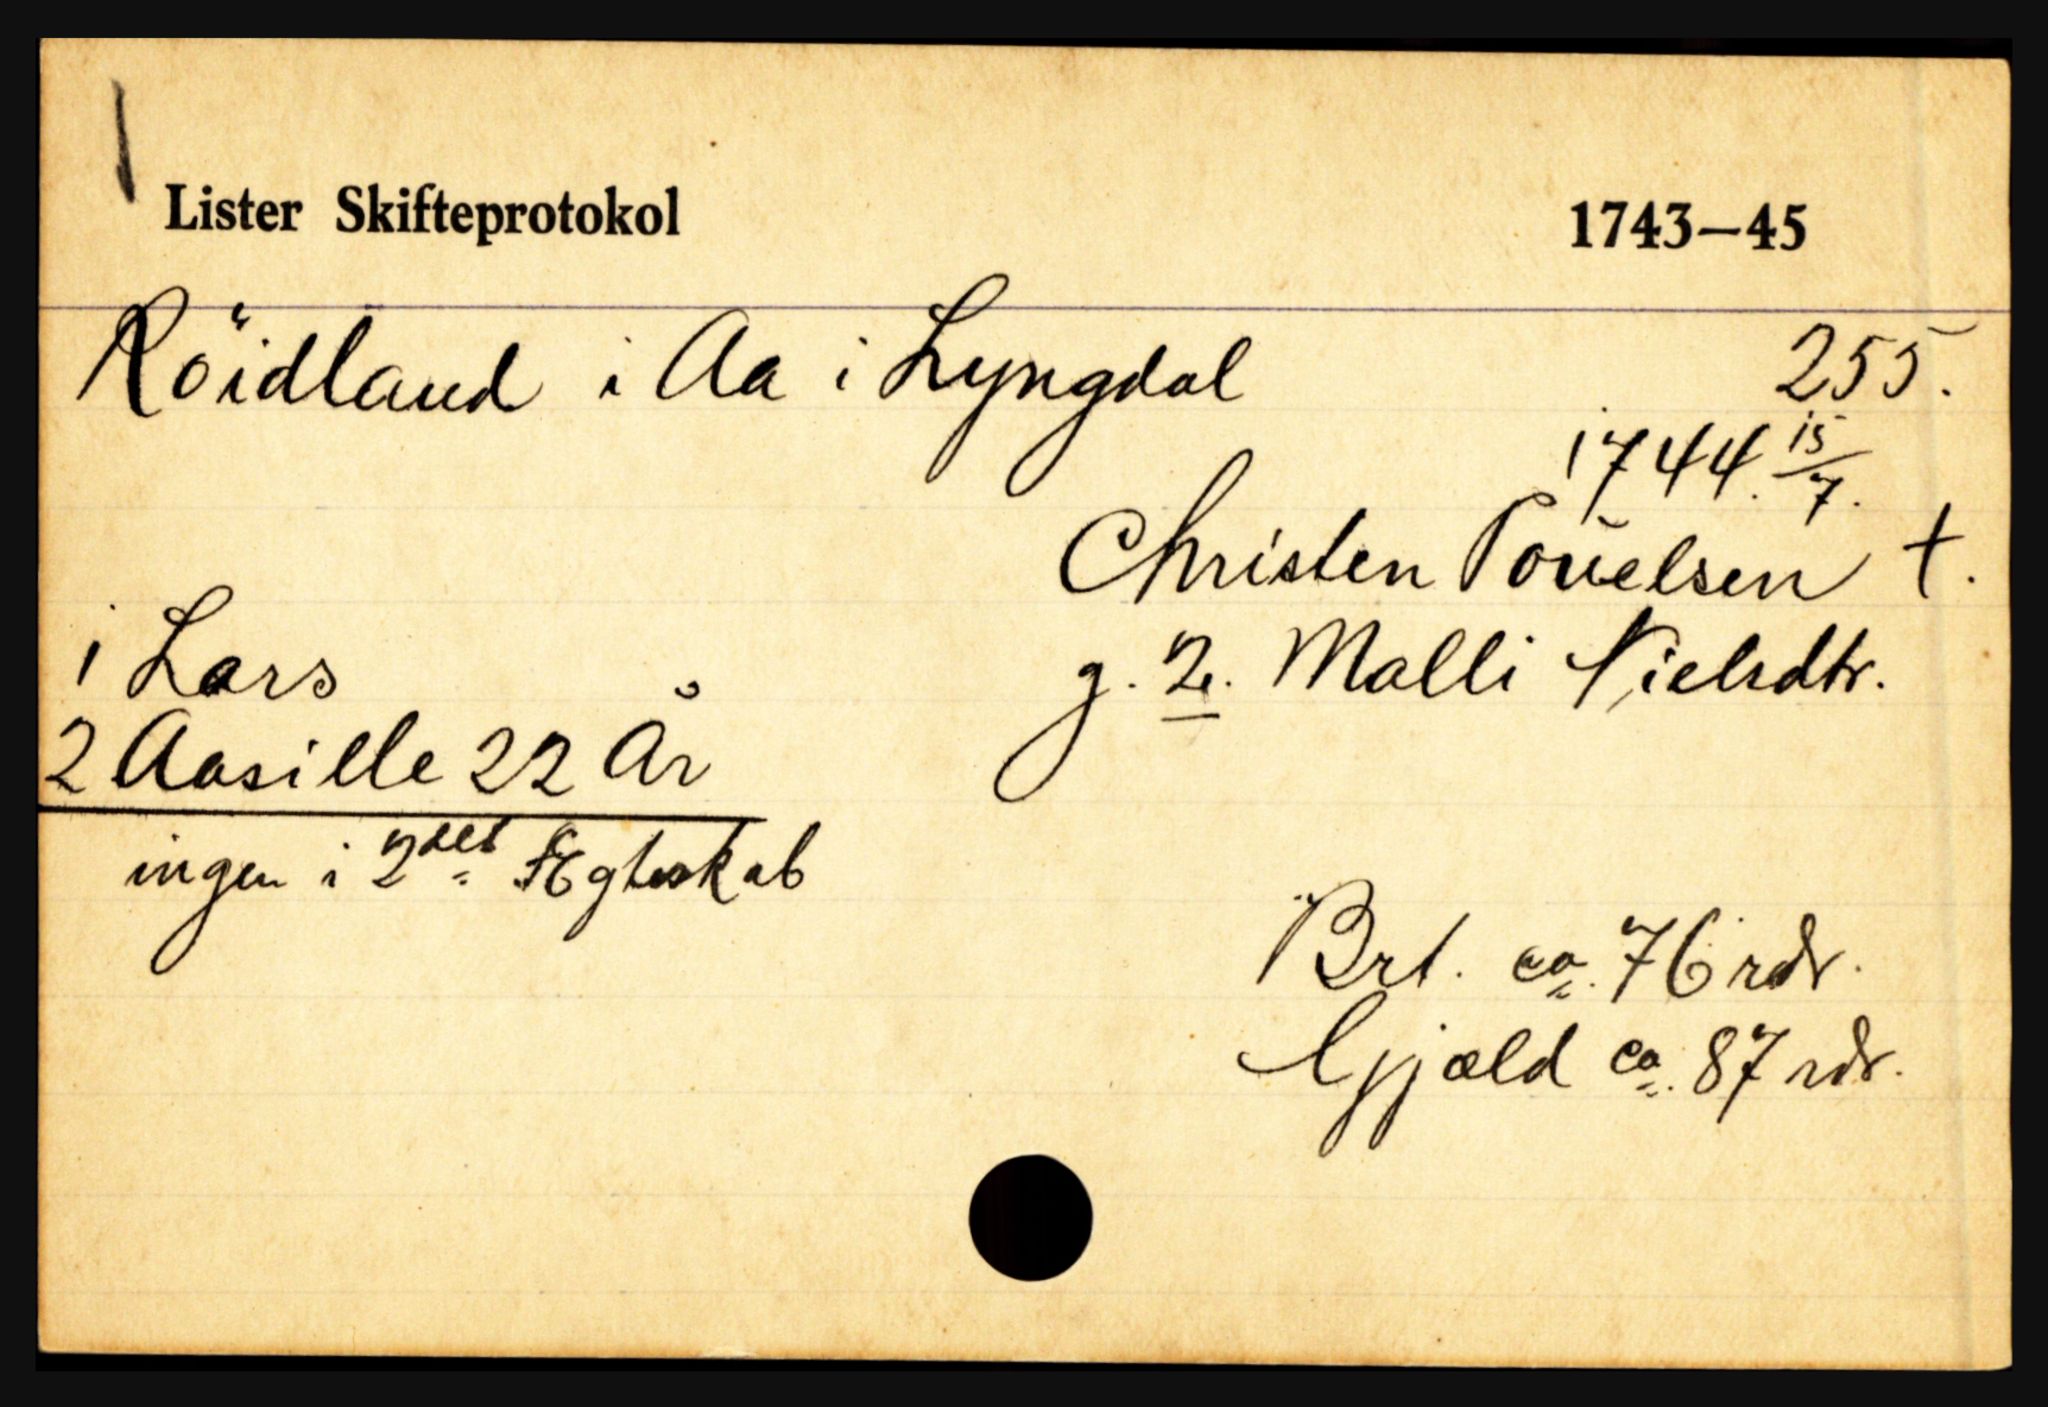 Lister Skifteprotokol 1743—45
Röidland i Aa i Lyngdal 255.
1744. 15/7.
Christen Povelsen †.
1 Lars g. 2. Malli Nielsdtr.
2 Aasille 22 År
ingen i 2det Ægteskab
Brt. ca. 76 rdr.
Gjæld ca. 87 rdr.